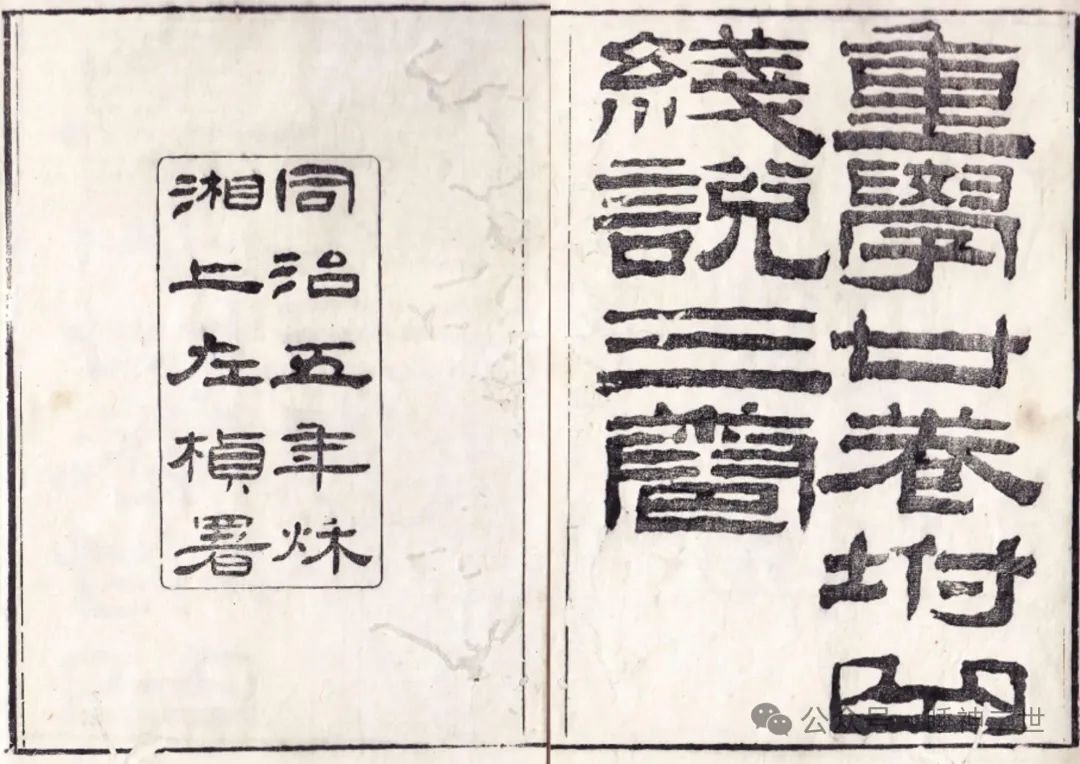 重學廿卷坿曲
綫說三卷
同治五年秌
湘上左楨署
公众号